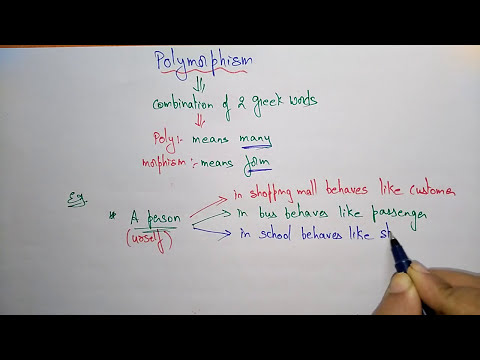 Polymorphism
Combination of 2 Greek words
Poly:- means many
morphism:- means form
Eg.
in shopping mall behaves like customer
* A person
in bus behaves like passenger
in school behaves like st